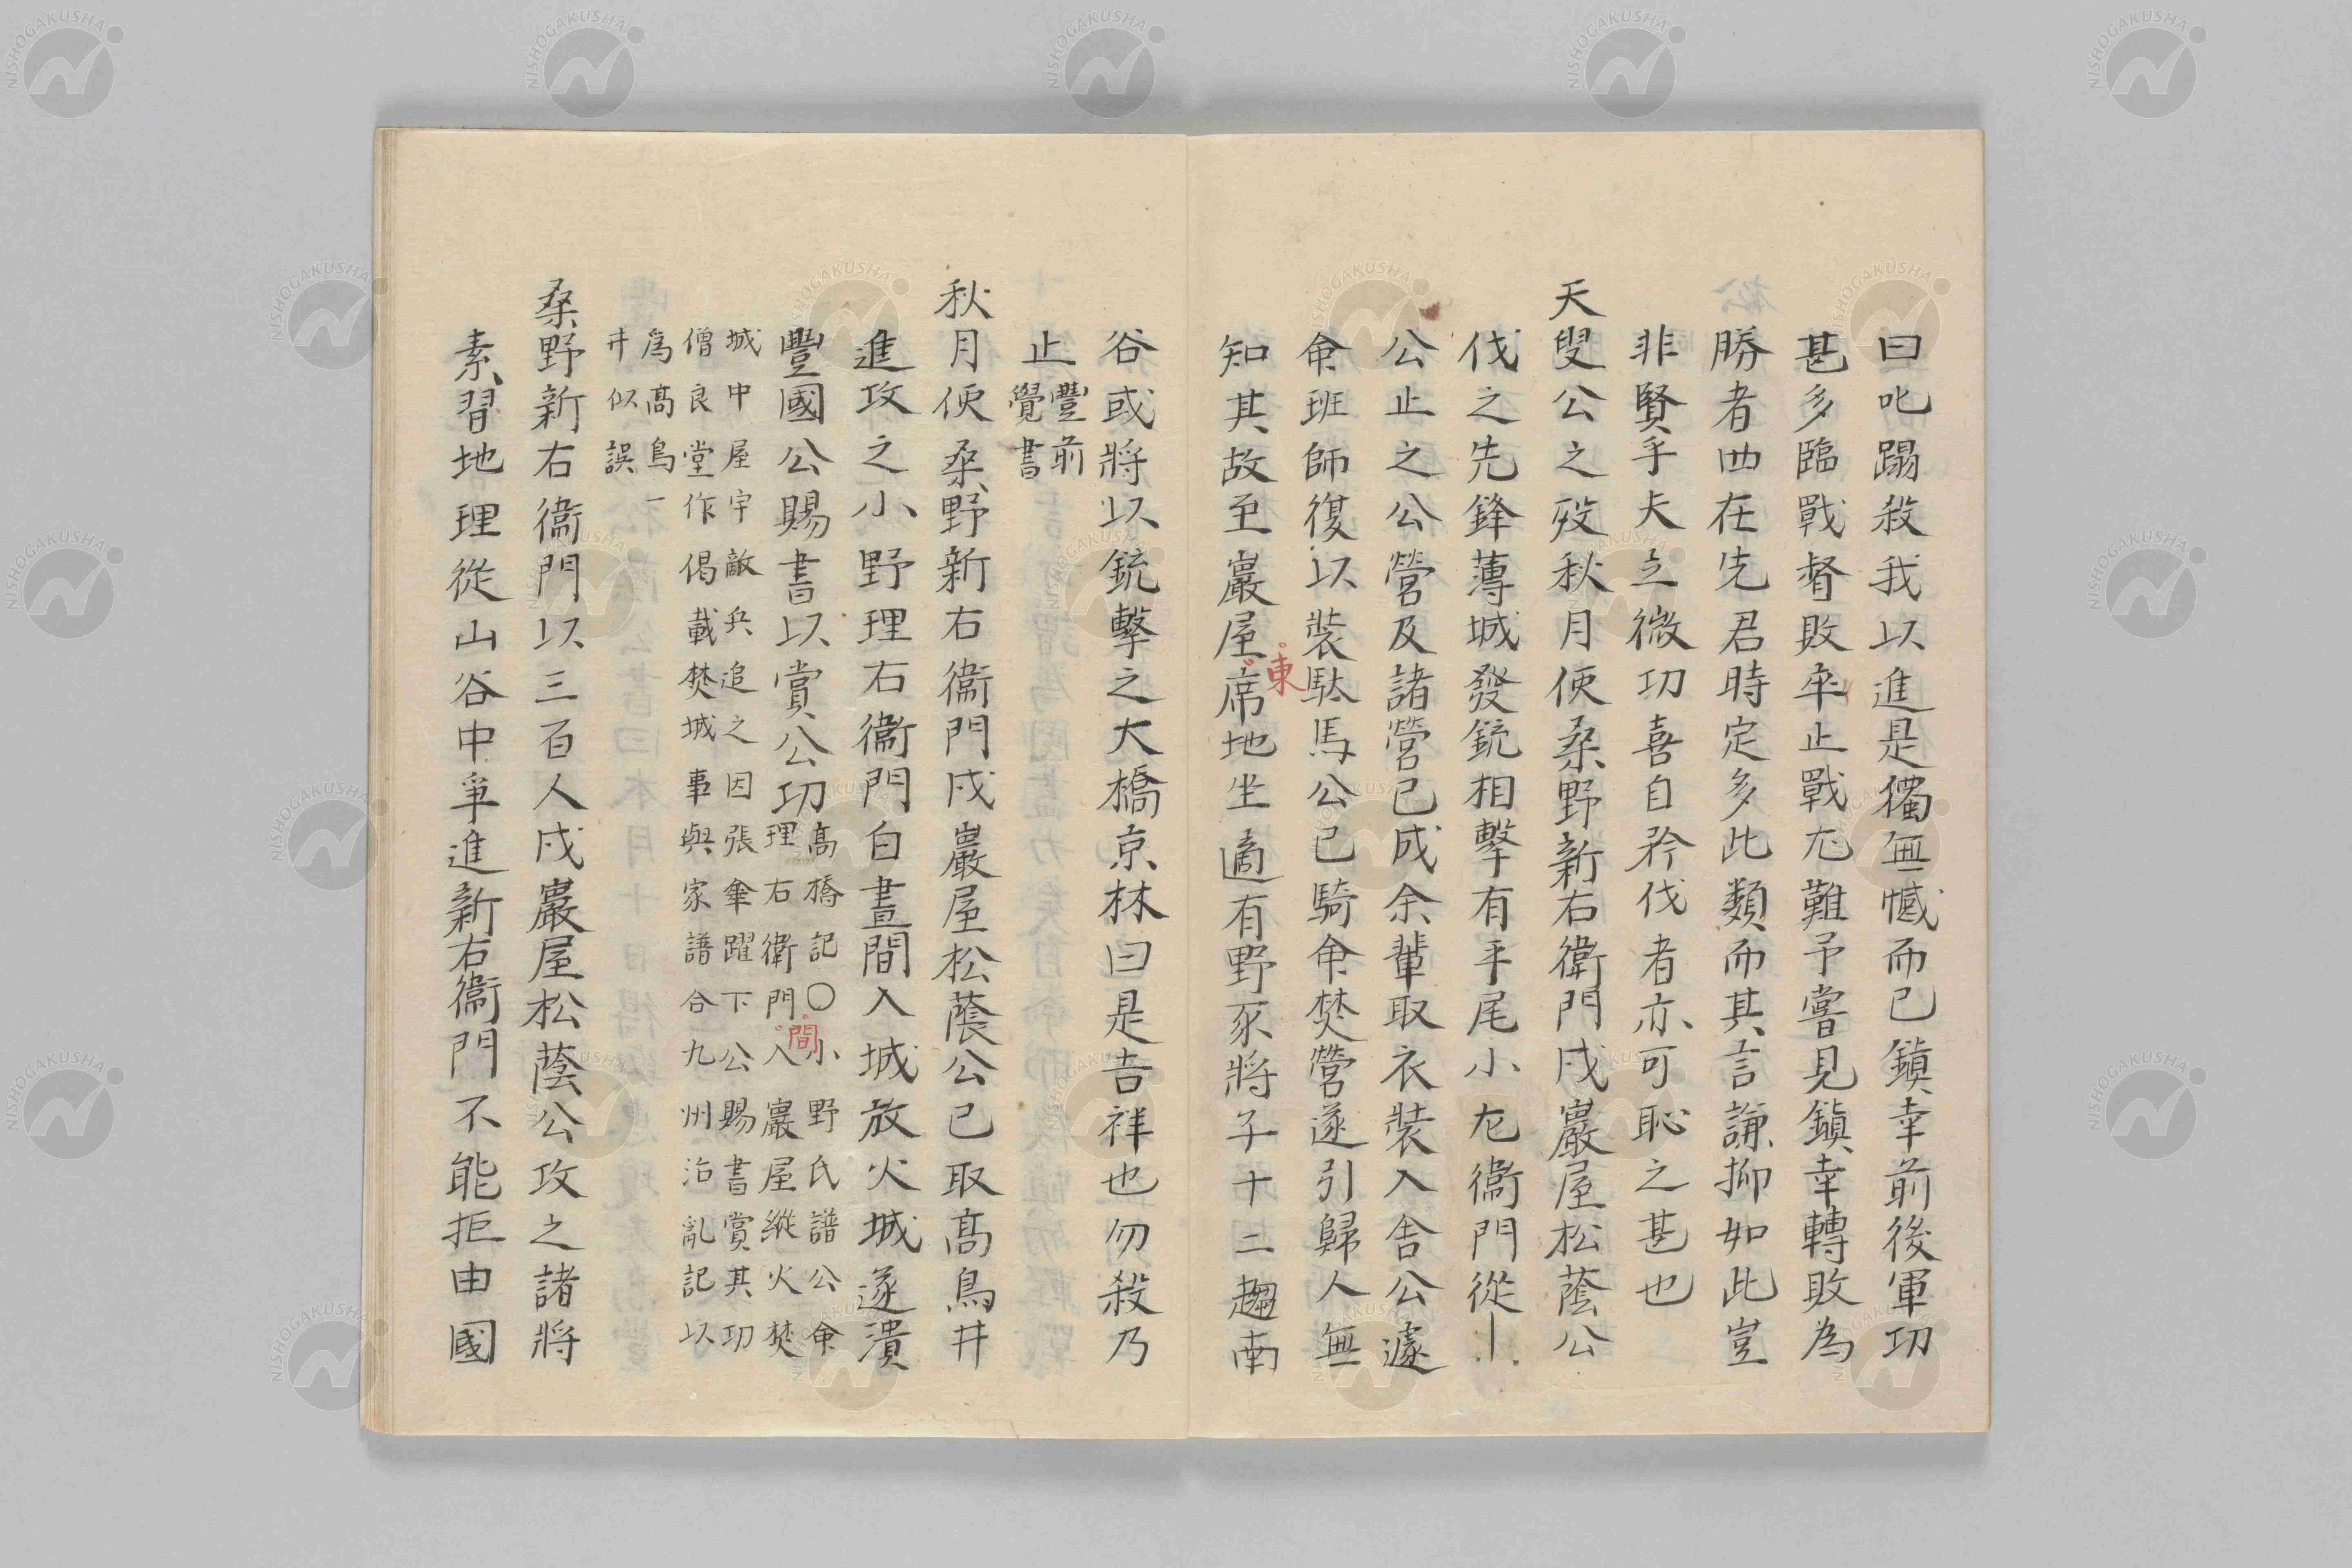 曰叱蹋殺我以進是獨無憾而已鎮幸前後軍功
甚多臨戰督敗卒止戰尤難予嘗見鎮幸轉敗為
勝者四在先君時定多此類而其言謙抑如此豈
非賢乎夫立微功喜自矜伐者亦可恥之甚也
天叟公之歿秋月使桑野新右衛門戍巖屋松蔭公
伐之先鋒薄城發銃相擊有手尾小左衛門從
公止之公營及諸營已成余輩取衣裝入舍公遽
命班師復以裝駄馬公已騎命焚營遂引歸人無
知其故至巖屋席地坐適有野豕將子十二趨南
東
谷或將以銃擊之大橋京林曰是吉祥也勿殺乃
止豐前
覺書
秋月使桑野新右衛門戍巖屋松蔭公已取高鳥井
進攻之小野理右衛門白晝間入城放火城遂潰
豐國公賜書以賞公功高橋記〇小野氏譜公命
理右衛門入巖屋縱火焚
間
城中屋宇敵兵追之因張傘躍下公賜書賞其功
僧良堂作偈載焚城事與家譜合九州治亂記以
為高鳥
井似誤
桑野新右衛門以三百人戍巖屋松蔭公攻之諸將
素習地理從山谷中爭進新右衛門不能拒由國
NISHOGAKUSHA